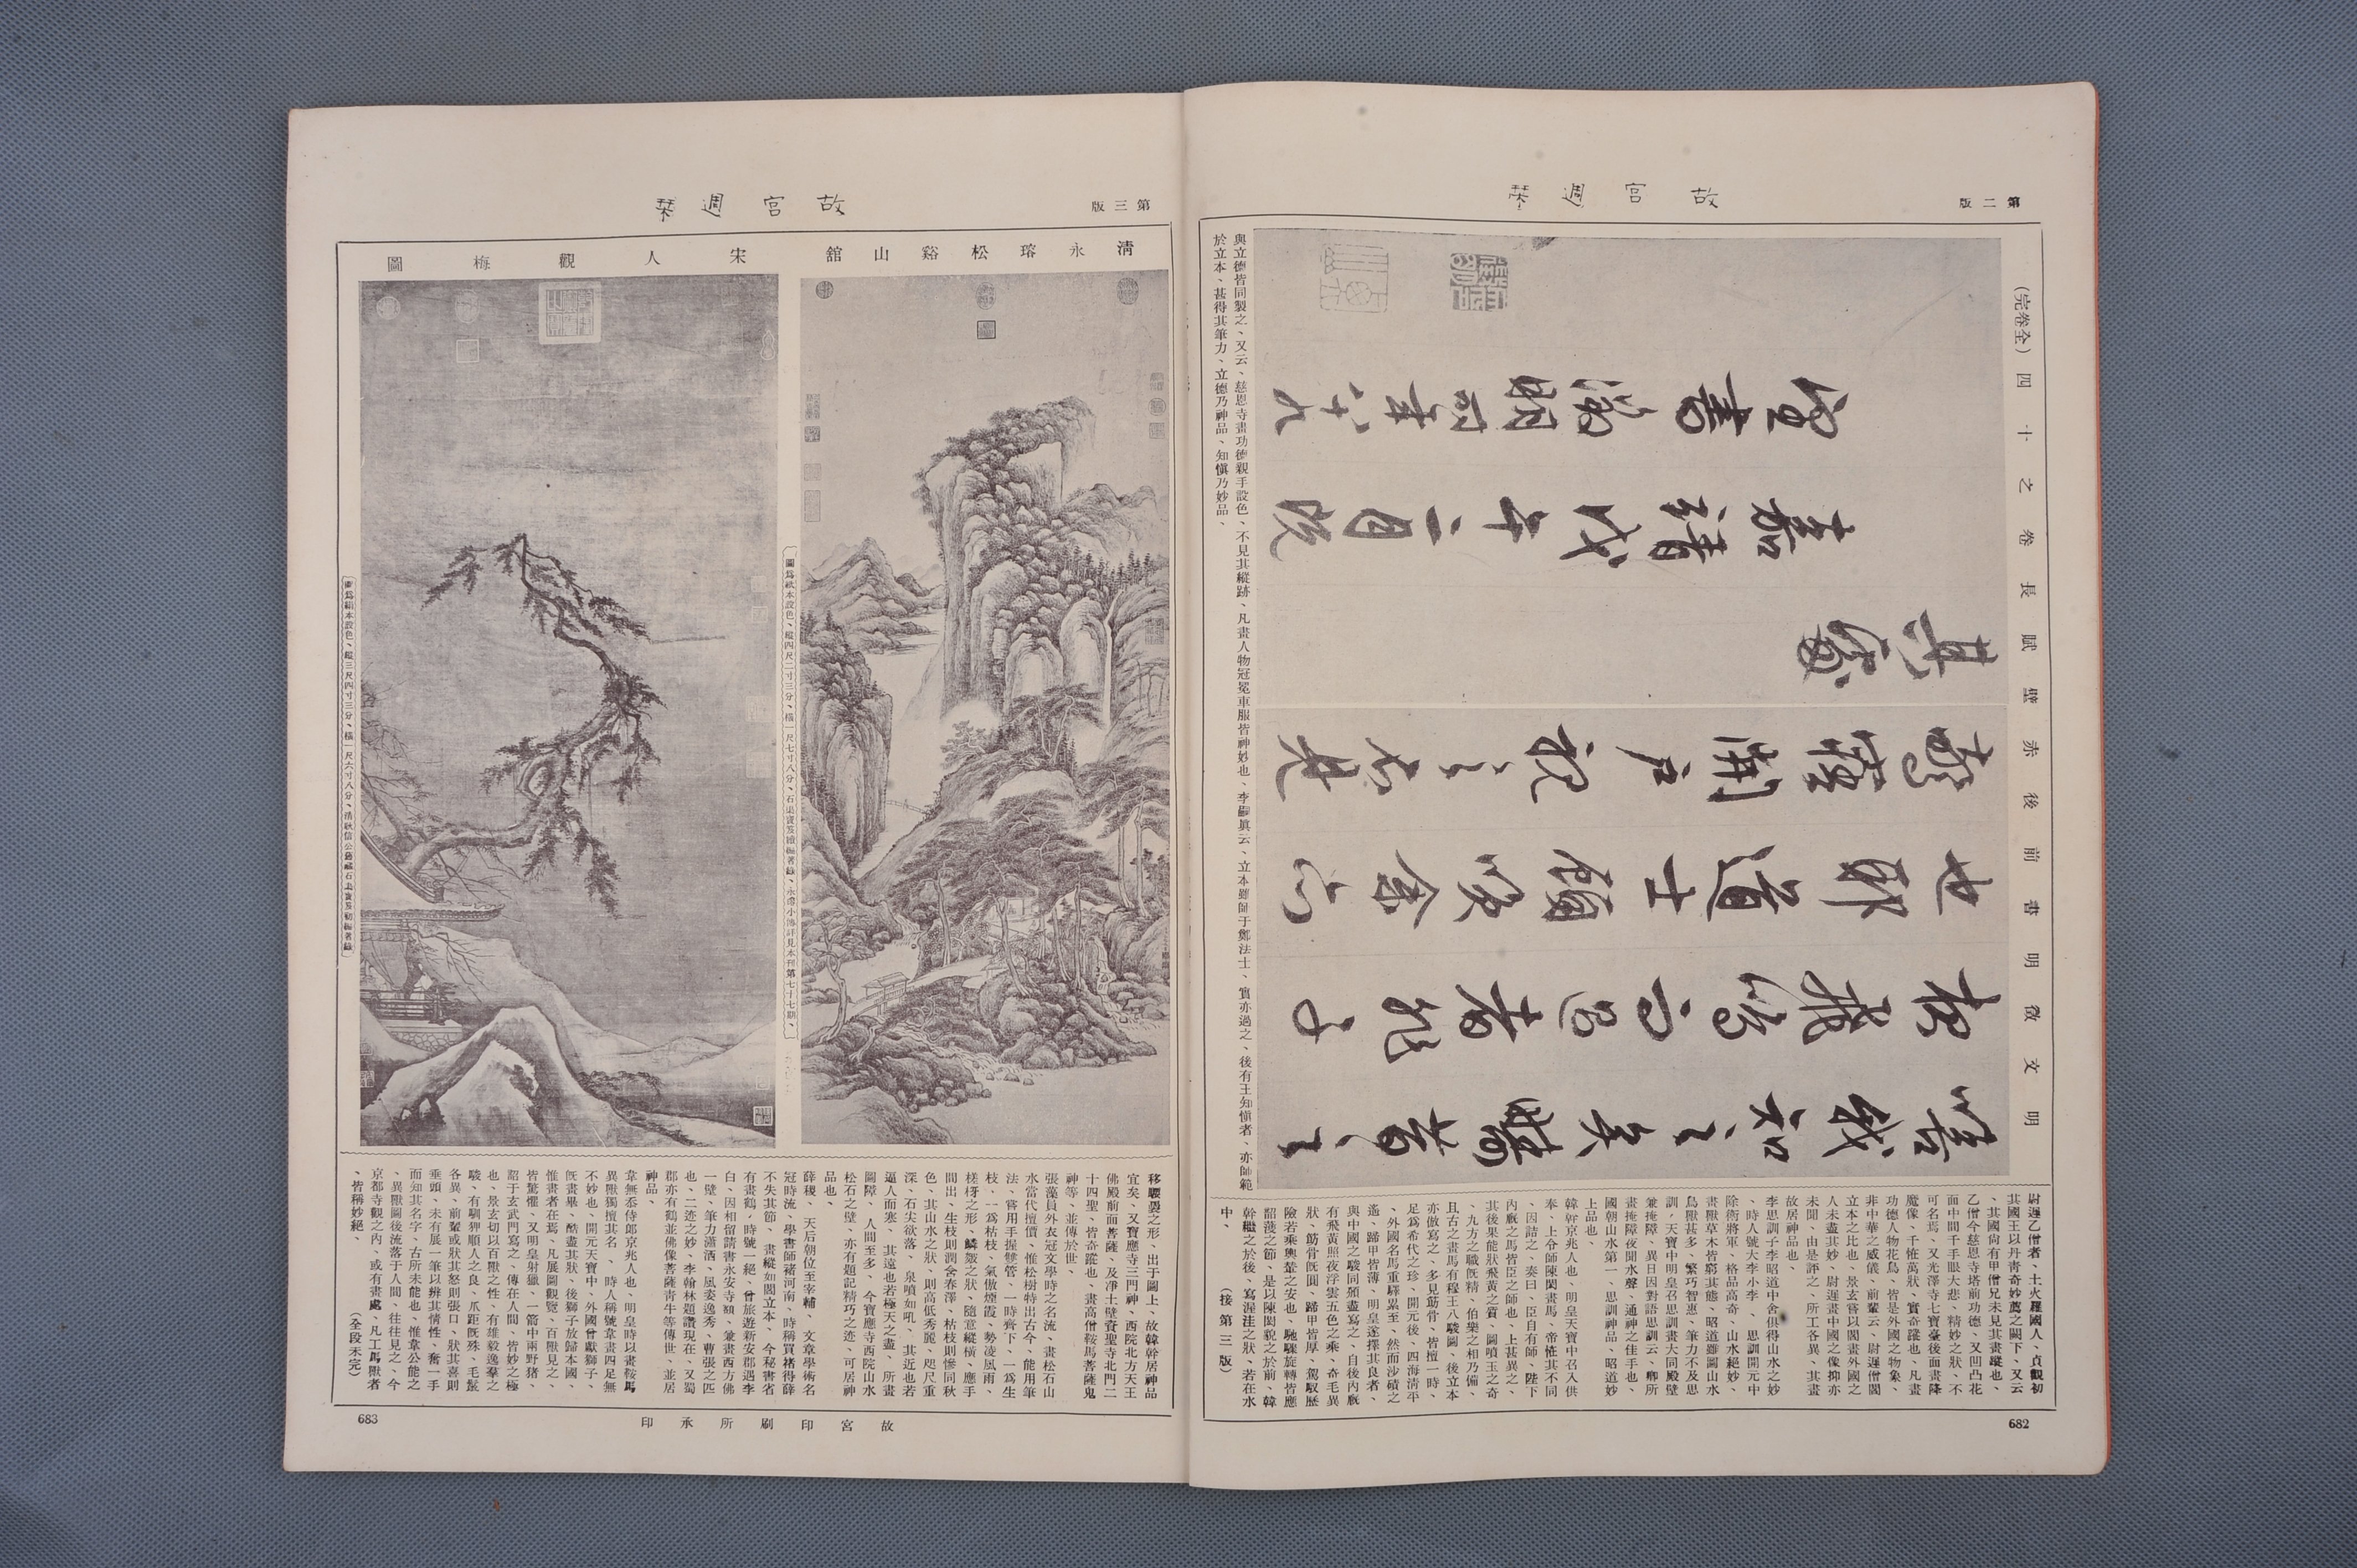 第二版
故宮週栞
明文徵明書前後赤壁賦長卷之十四(全卷完)
嘻我知之矣疇昔之
夜飛鳴而過者非子
也耶道士顧笑余亦
驚寤開戶視之不見
其處
嘉靖戊午二月既
望書徵明時年八十九
尉遲乙僧者、土火羅國人、貞觀初
其國王以丹青奇妙薦之闕下、又云
、其國尙有甲僧兄未見其畫蹤也、
乙僧今慈恩寺塔前功德、又凹凸花
面中間千手眼大悲、精妙之狀、不
可名焉、又光澤寺七寶臺後面畫降
魔像、千怪萬狀、實奇蹤也、凡畫
功德人物花鳥、皆是外國之物象、
非中華之威儀、前輩云、尉遲僧閻
立本之比也、景玄嘗以閻畫外國之
人未盡其妙、尉遲畫中國之像抑亦
未聞、由是評之、所工各異、其畫
故居神品也、
李思訓子李昭道中舍俱得山水之妙
、時人號大李小李、思訓開元中
除衞將軍、格品高奇、山水絕妙、
畫獸草木皆窮其態、昭道雖圖山水
鳥獸甚多、繁巧智惠、筆力不及思
訓、天寶中明皇召思訓畫大同殿壁
兼掩障、異日因對語思訓云、卿所
畫掩障夜聞水聲、通神之佳手也、
國朝山水第一、思訓神品、昭道妙
上品也、
韓幹京兆人也、明皇天寶中召入供
奉、上令師陳閎畫馬、帝怪其不同
、因詰之、奏曰、臣自有師、陛下
內厩之馬皆臣之師也、上甚異之、
其後果能狀飛黃之質、圖噴玉之奇
、九方之職旣精、伯樂之相乃備、
且古之畫馬有穆王八駿圖、後立本
亦倣寫之、多見筋骨、皆擅一時、
足爲希代之珍、開元後、四海清平
、外國名馬重驛累至、然而沙磧之
遙、蹄甲皆薄、明皇遂擇其良者、
與中國之駿同頒盡寫之、自後內厩
有飛黃照夜浮雲五色之乘、奇毛異
狀、筋骨旣圓、蹄甲皆厚、駕馭歷
險若乘輿輦之安也、馳驟旋轉皆應
韶濩之節、是以陳閎貌之於前、韓
幹繼之於後、寫渥洼之狀、若在水
中、（接第三版）
與立德皆同製之、又云、慈恩寺畫功德親手設色、不見其縱跡、凡畫人物冠冕車服皆神妙也、李嗣眞云、立本雖師于鄭法士、實亦過之、後有王知愼者、亦師範
於立本、甚得其筆力、立德乃神品、知愼乃妙品、
682
第三版
故宮週栞
淸永瑢松谿山舘
宋人觀梅圖
圖爲紙本設色、縱四尺二寸三分、橫一尺七寸八分、石渠寶笈續編著錄、永瑢小傳詳見本刊第七十七期、
圖爲絹本設色、縱三尺四寸三分、橫一尺六寸八分、淸耿信公舊藏石渠寶笈初編著錄、
移騕褭之形、出于圖上、故韓幹居神品
宜矣、又寶應寺三門神、西院北方天王
佛殿前面菩薩、及淨土壁資聖寺北門二
十四聖、皆奇蹤也、畫高僧鞍馬菩薩鬼
神等、並傳於世、
張藻員外衣冠文學時之名流、畫松石山
水當代擅價、惟松樹特出古今、能用筆
法、嘗用手握雙管、一時齊下、一爲生
枝、一爲枯枝、氣傲煙霞、勢凌風雨、
槎枒之形、鱗皴之狀、隨意縱橫、應手
間出、生枝則潤含春澤、枯枝則慘同秋
色、其山水之狀、則高低秀麗、咫尺重
深、石尖欲落、泉噴如吼、其近也若
逼人而寒、其遠也若極天之盡、所畫
圖障、人間至多、今寶應寺西院山水
松石之壁、亦有題記精巧之迹、可居神
品也、
薛稷、天后朝位至宰輔、文章學術名
冠時流、學書師褚河南、時稱買褚得薛
不失其節、畫縱如閻立本、今秘書省
有畫鶴、時號一絕、曾旅遊新安郡遇李
白、因相留請書永安寺額、兼畫西方佛
一壁、筆力瀟洒、風姿逸秀、曹張之匹
也、二迹之妙、李翰林題讚現在、又蜀
郡亦有鶴並佛像菩薩靑牛等傳世、並居
神品、
韋無忝侍郎京兆人也、明皇時以畫鞍馬
異獸獨擅其名、時人稱號韋畫四足無
不妙也、開元天寶中、外國曾獻獅子、
旣畫畢、酷盡其狀、後獅子放歸本國、
惟畫者在焉、凡展圖觀覽、百獸見之、
皆驚懼、又明皇射獵、一箭中兩野猪、
詔于玄武門寫之、傳在人間、皆妙之極
也、景玄切以百獸之性、有雄毅逸羣之
駿、有馴狎順人之良、爪距旣殊、毛鬣
各異、前輩或狀其怒則張口、狀其喜則
垂頭、未有展一筆以辨其情性、奮一手
而知其名字、古所未能也、惟韋公能之
、異獸圖後流落于人間、往往見之、今
京都寺觀之內、或有畫處、凡工馬獸者
、皆稱妙絕、（全段未完）
故宮印刷所承印
683